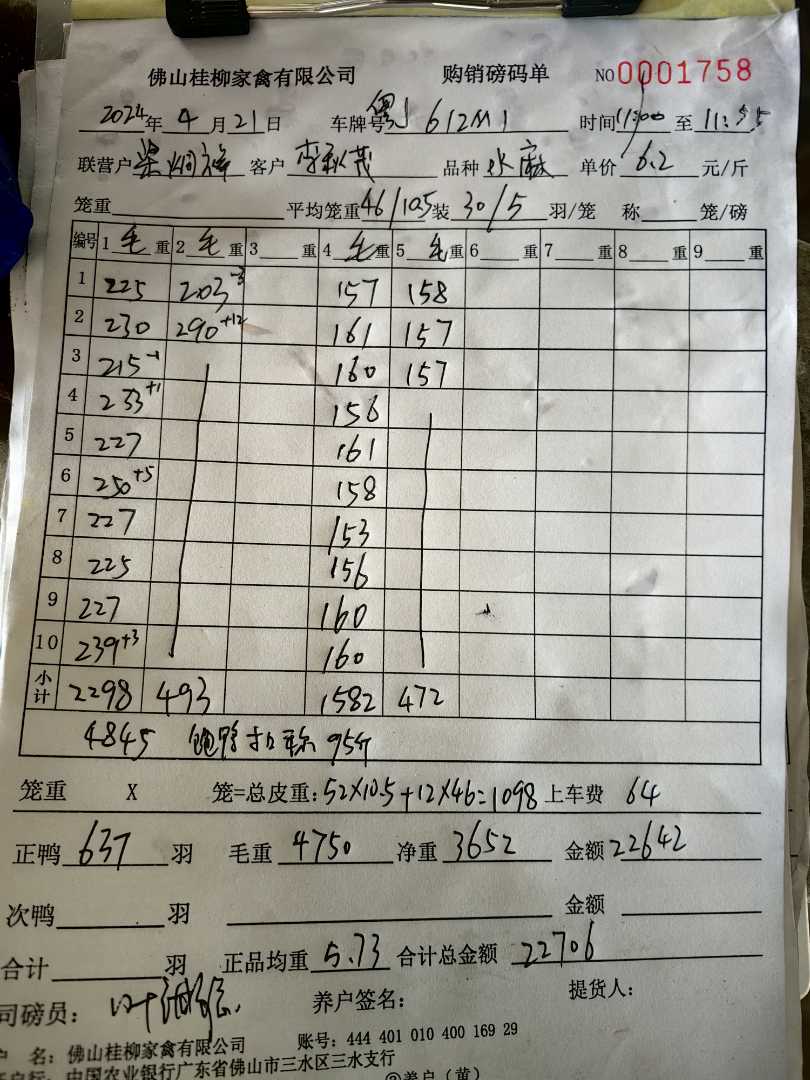 佛山桂柳家禽有限公司 购销磅码单 NO0001758
2024年 4 月 21 日 车牌号 粤J 612M1 时间 11:00 至 11:55
联营户 梁炯锋 客户 李秋茂 品种 水麻 单价 6.2 元/斤
笼重 平均笼重 46/10.5 装 30/5 羽/笼 称 笼/磅
编号 1 毛 重 2 毛 重 3 重 4 毛 重 5 毛 重 6 重 7 重 8 重 9 重
1 225 203-3 157 158
2 230 290+12 161 157
3 215-1 160 157
4 233+1 156
5 227 161
6 250+5 158
7 227 153
8 225 156
9 227 160
10 239+3 160
小计 2298 493 1582 472
4845 饱鸭扣称 95斤
笼重 X 笼=总皮重: 52×10.5+12×46=1098 上车费 64
正鸭 637 羽 毛重 4750 净重 3652 金额 22642
次鸭 羽 金额
合计 羽 正品均重 5.73 合计总金额 22706
司磅员: 养户签名: 提货人:
户 名: 佛山桂柳家禽有限公司 账号: 444 401 010 400 169 29
开户行: 中国农业银行广东省佛山市三水区三水支行
②养户（黄）